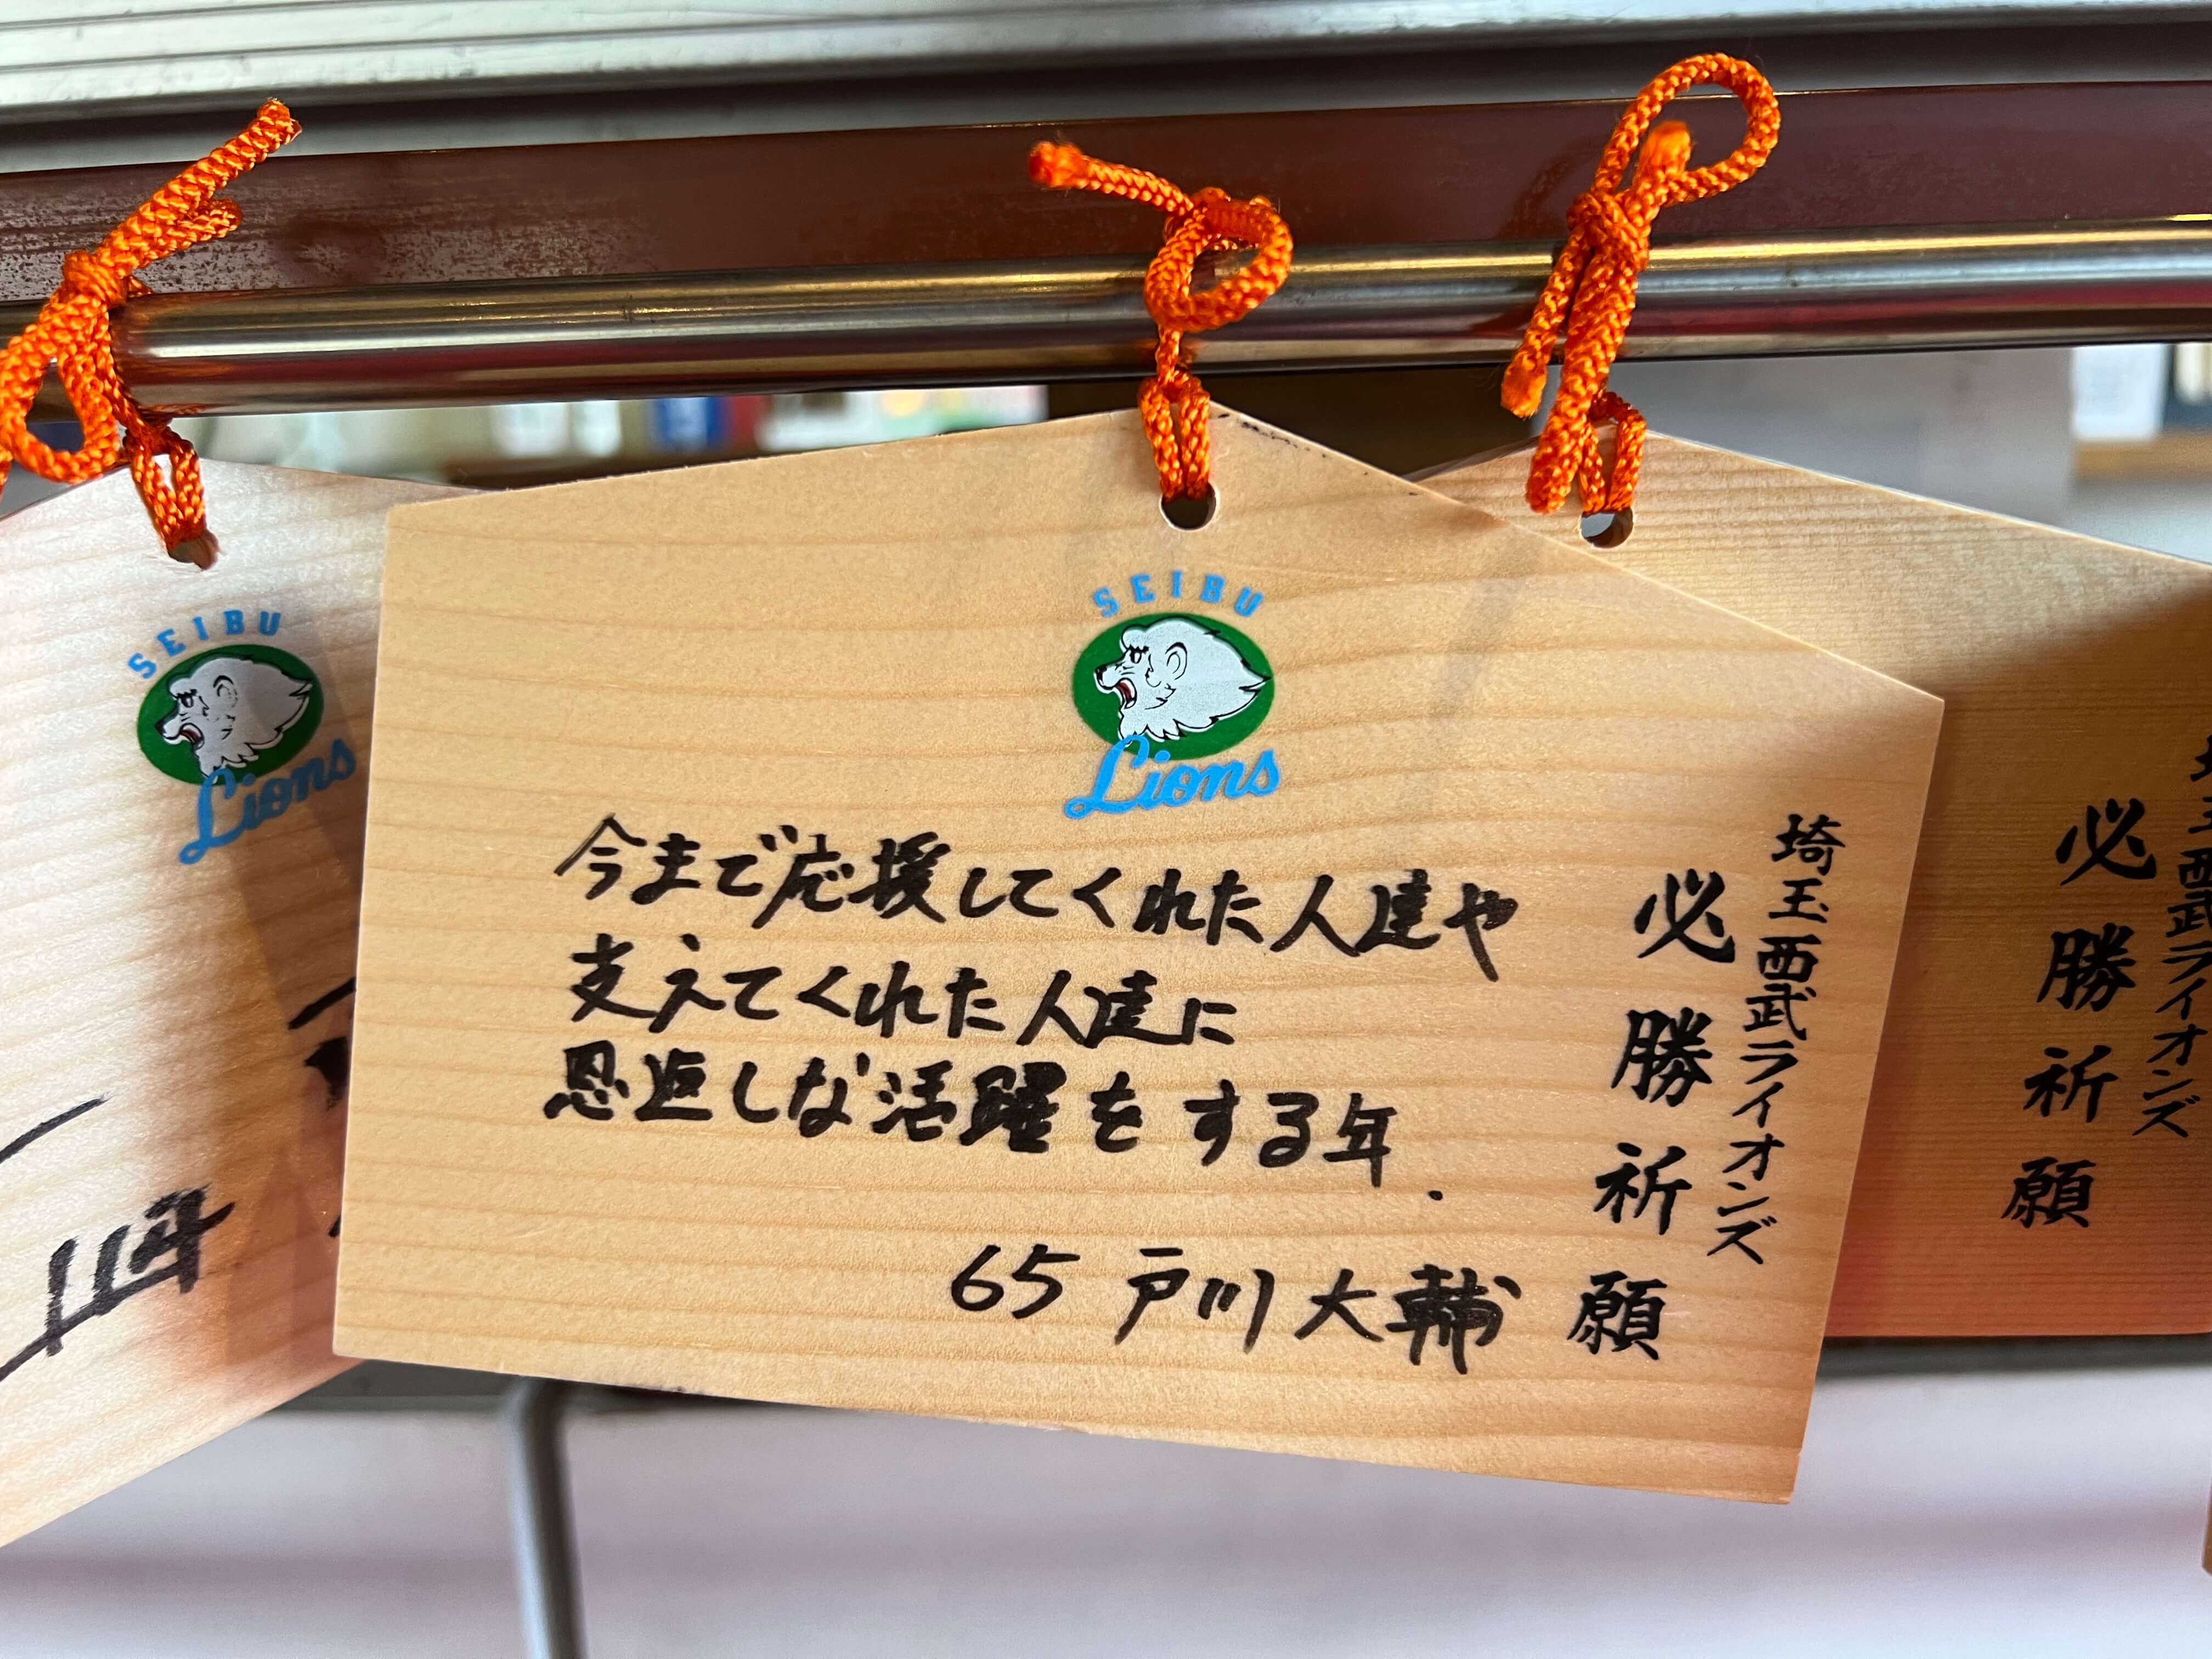 SEIBU
Lions
SEIBU
Lions
埼玉西武ライオンズ
必勝祈願
今まで応援してくれた人達や
支えてくれた人達に
恩返しな活躍をする年.
65 戸川大輔
埼玉西武ライオンズ
必勝祈願